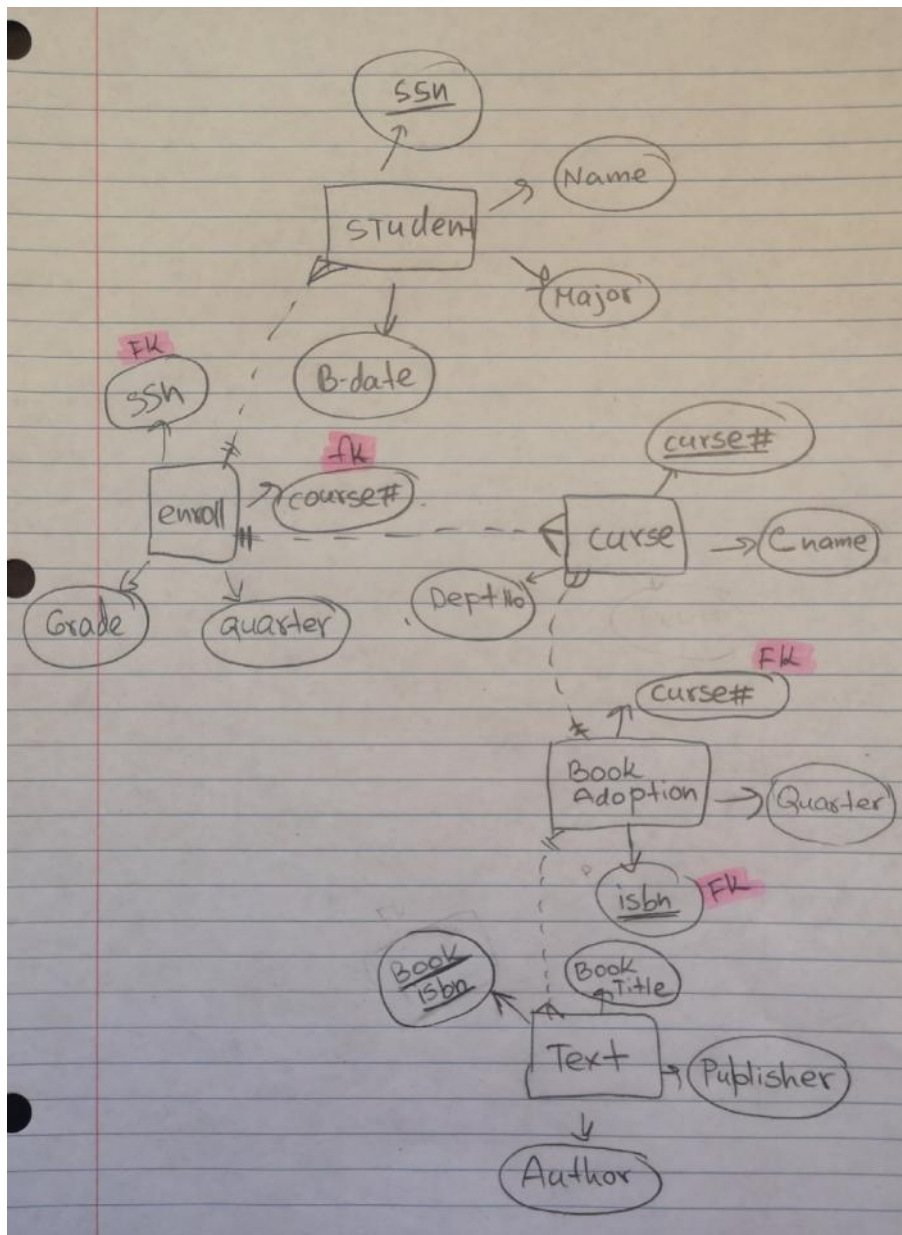 SSn
Name
Student
Major
B-date
FK
SSn
fk
course#
enroll
Grade
quarter
curse#
curse
Cname
Dept No
FK
curse#
Book
Adoption
Quarter
isbn
FK
Book
isbn
Book
Title
Text
Publisher
Author